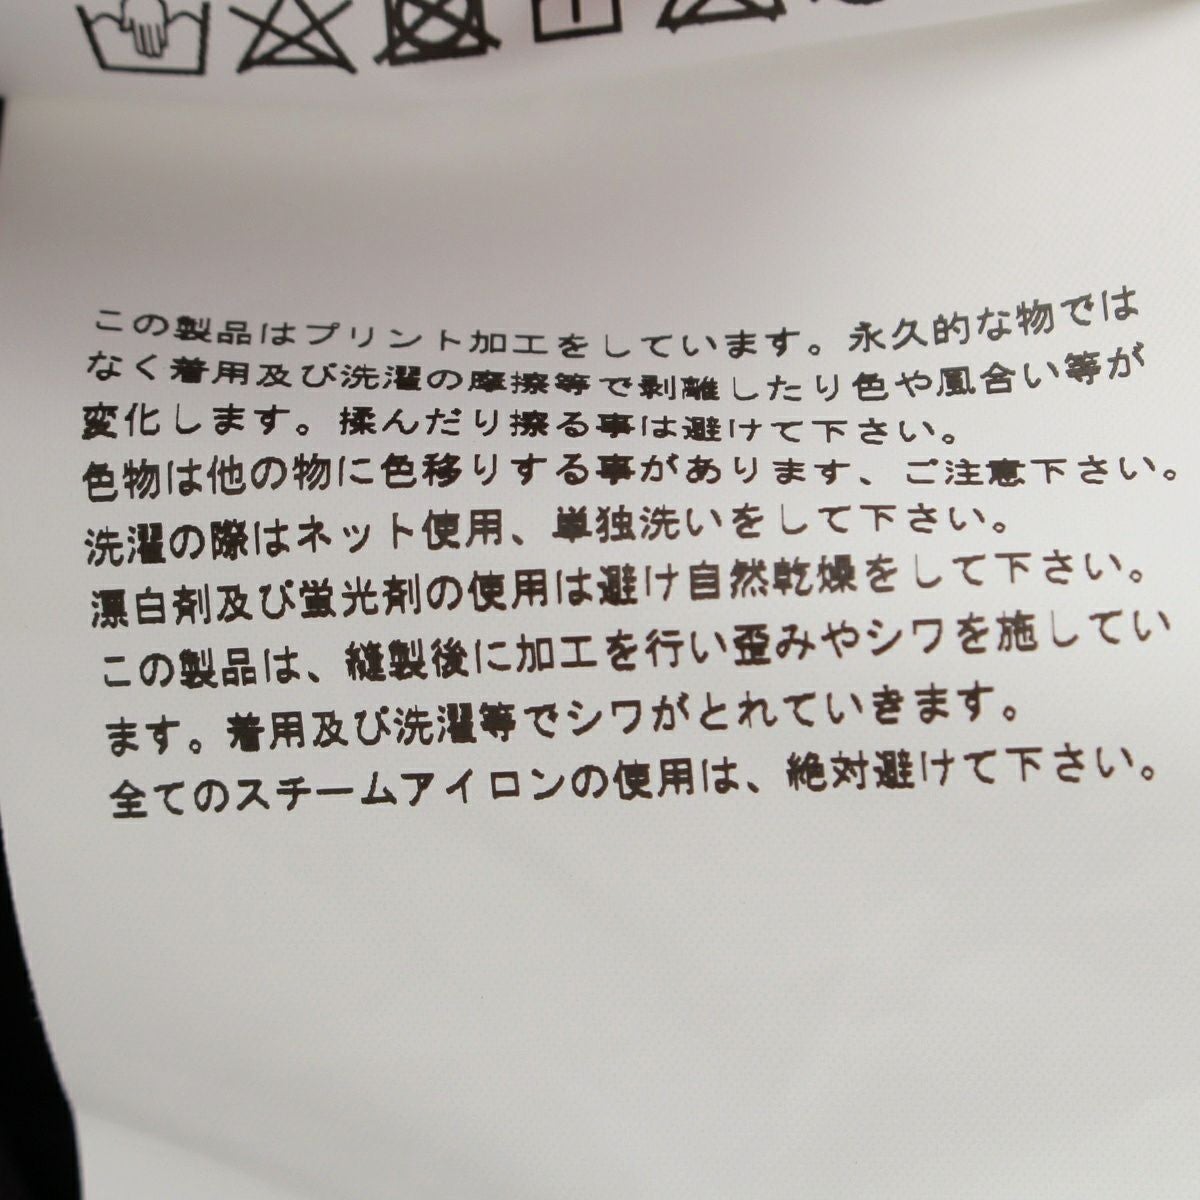 この製品はプリント加工をしています。永久的な物では
なく着用及び洗濯の摩擦等で剥離したり色や風合い等が
変化します。揉んだり擦る事は避けて下さい。
色物は他の物に色移りする事があります、ご注意下さい。
洗濯の際はネット使用、単独洗いをして下さい。
漂白剤及び蛍光剤の使用は避け自然乾燥をして下さい。
この製品は、縫製後に加工を行い歪みやシワを施してい
ます。着用及び洗濯等でシワがとれていきます。
全てのスチームアイロンの使用は、絶対避けて下さい。